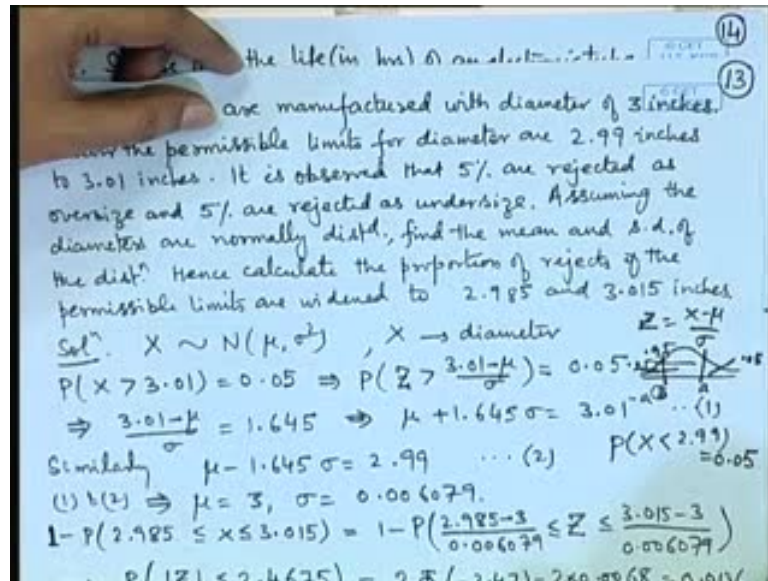 (14)
the life (in hrs) of an
(13)
are manufactured with diameter of 3 inches.
the permissible limits for diameter are 2.99 inches
to 3.01 inches. It is observed that 5% are rejected as
oversize and 5% are rejected as undersize. Assuming the
diameters are normally distd., find the mean and s.d. of
the distn. Hence calculate the proportion of rejects if the
permissible limits are widened to 2.985 and 3.015 inches
Soln. X ~ N(μ, σ²), X → diameter Z = x-μ/σ
P(X > 3.01) = 0.05 ⇒ P(Z > 3.01-μ/σ) = 0.05
⇒ 3.01-μ/σ = 1.645 ⇒ μ + 1.645 σ = 3.01 ... (1)
Similarly μ - 1.645 σ = 2.99 ... (2) P(X < 2.99) = 0.05
(1) & (2) ⇒ μ = 3, σ = 0.006079.
1 - P(2.985 ≤ X ≤ 3.015) = 1 - P(2.985-3/0.006079 ≤ Z ≤ 3.015-3/0.006079)
P(|Z| ≤ 2.4675) = 2Φ(-2.47) = 2×0.0068 = 0.0136